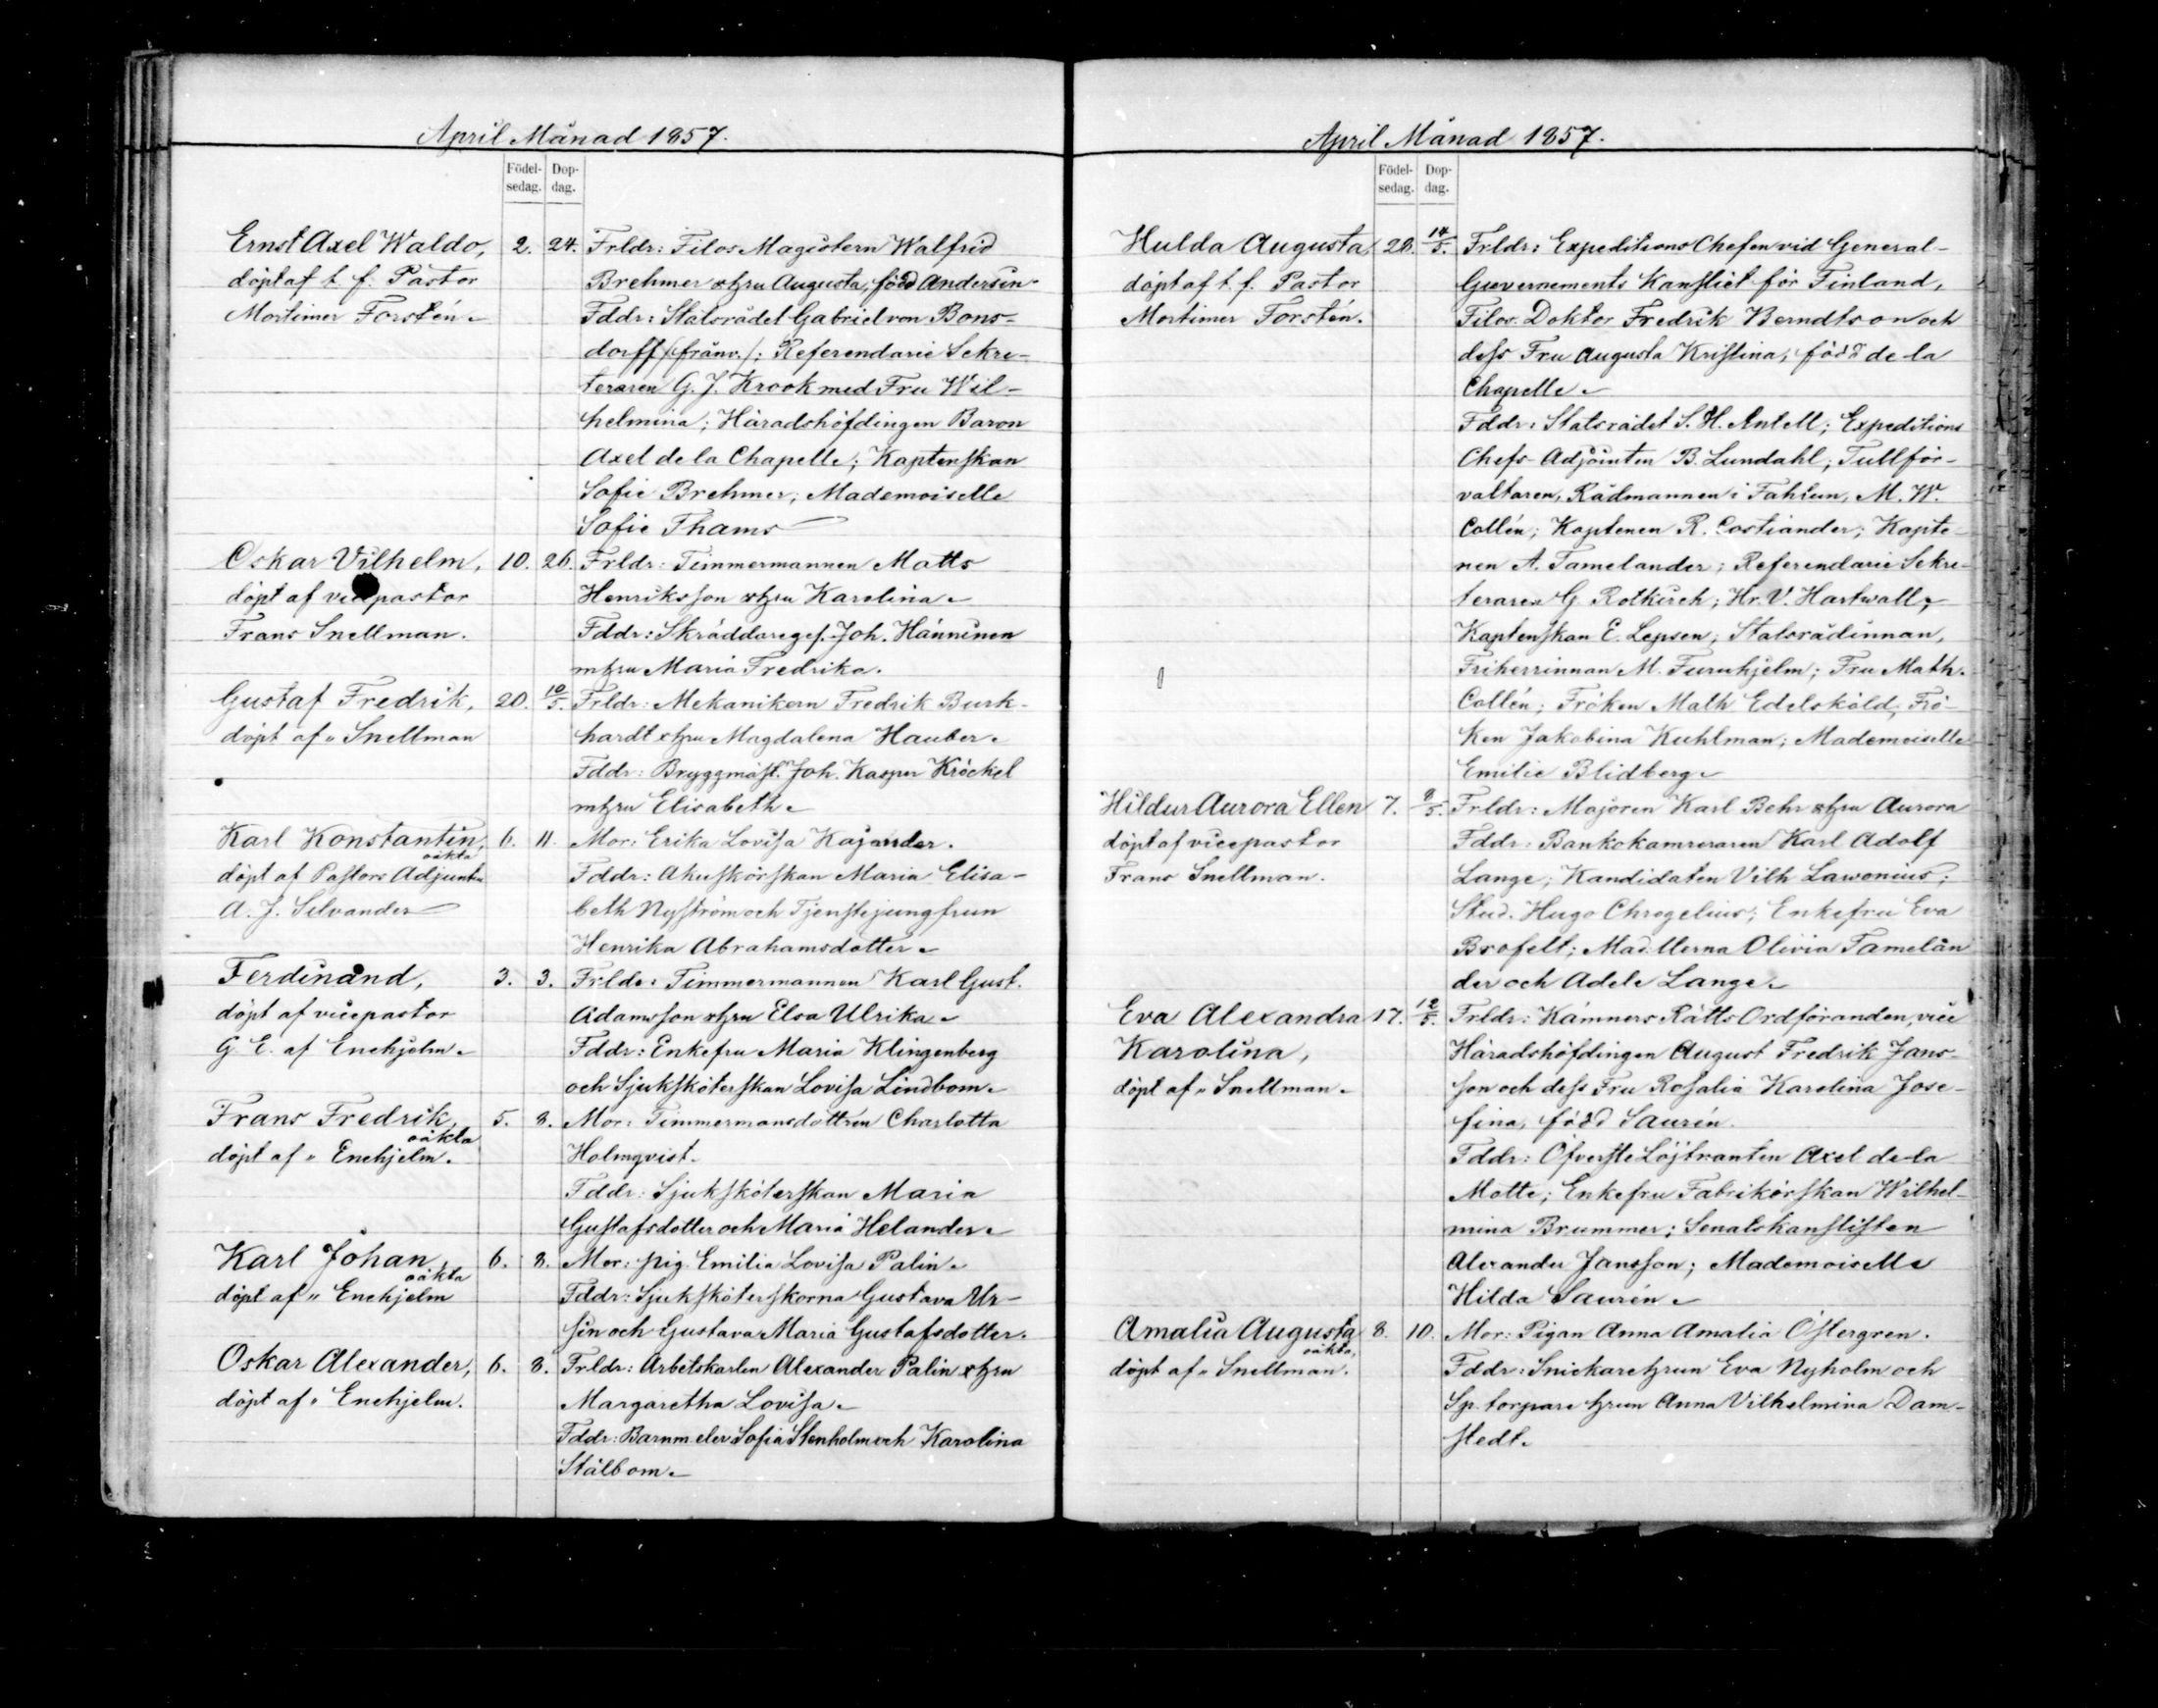 April Månad 1857.
Födel-
sedag.
Dop-
dag.
Ernst Axel Waldo, 2. 24. Frldr: Filos. Magistern Walfrid
döpt af t. f. Pastor Brehmer o hfru Augusta, född Andersin
Mortimer Forstén. Fddr: Statsrådet Gabriel von Bons-
dorff /:frånv./: Referendarie Sekre-
teraren G. J. Krook med Fru Wil-
helmina; Häradshöfdingen Baron
Axel de la Chapelle; Kaptenskan
Sofie Brehmer, Mademoiselle
Sofie Thams
Oskar Vilhelm, 10. 26. Frldr: Timmermannen Matts
döpt af vicepastor Henriksson o hfru Karolina.
Frans Snellman. Fddr: Skräddareges. Joh. Hänninen
m hfru Maria Fredrika.
Gustaf Fredrik, 20. 10/5. Frldr: Mekanikern Fredrik Burk-
döpt af " Snellman hardt o hfru Magdalena Hauber.
Fddr: Bryggmäst. Joh. Kasper Kröckel
m hfru Elisabeth.
Karl Konstantin, 6. 11. Mor: Erika Lovisa Kajander.
oäkta
döpt af Pastors Adjunkten Fddr: Akuskörskan Maria Elisa-
A. J. Silvander beth Nyström och Tjenstejungfrun
Henrika Abrahamsdotter.
Ferdinand, 3. 3. Frldr: Timmermannen Karl Gust.
döpt af vicepastor Adamsson o hfru Elsa Ulrika.
G. E. af Enehjelm. Fddr: Enkefru Maria Klingenberg
och Sjuksköterskan Lovisa Lindbom.
Frans Fredrik, 5. 8. Mor: Timmermansdottren Charlotta
oäkta
döpt af " Enehjelm. Holmqvist.
Fddr: Sjuksköterskan Maria
Gustafsdotter och Maria Helander.
Karl Johan, 6. 8. Mor: pig. Emilia Lovisa Palin.
oäkta
döpt af " Enehjelm Fddr: Sjuksköterskorna Gustava Ur-
sin och Gustava Maria Gustafsdotter.
Oskar Alexander, 6. 8. Frldr: Arbetskarlen Alexander Palin o hfru
döpt af " Enehjelm. Margaretha Lovisa.
Fddr: Barnm.elev Sofia Stenholm och Karolina
Stålbom.
April Månad 1857.
Födel-
sedag.
Dop-
dag.
Hulda Augusta, 28. 14/5. Frldr: Expeditions Chefen vid General-
döpt af t. f. Pastor Guvernements Kansliet för Finland,
Mortimer Forstén. Filos. Doktor Fredrik Berndtson och
dess Fru Augusta Kristina, född de la
Chapelle.
Fddr: Statsrådet S. H. Antell; Expeditions
Chefs-Adjointen B. Lundahl; Tullför-
valtaren, Rådmannen i Fahlun, M. W.
Collén; Kaptenen R. Costiander; Kapte-
nen A. Tamelander; Referendarie Sekre-
teraren G. Rotkirch; Hr. V. Hartwall;
Kaptenskan E. Lepsen; Statsrådinnan,
Friherrinnan M. Furuhjelm; Fru Math.
Collén; Fröken Math Edelsköld, Frö-
ken Jakobina Kuhlman; Mademoiselle
Emilie Blidberg.
Hildur Aurora Ellen 7. 9/5. Frldr: Majoren Karl Behr o hfru Aurora
döpt af vicepastor Fddr: Bankokamreraren Karl Adolf
Frans Snellman. Lange; Kandidaten Vilh Lawonius;
Stud. Hugo Chrogelius; Enkefru Eva
Brofelt; Mad.llerna Olivia Tamelan
der och Adele Lange.
Eva Alexandra 17. 12/5. Frldr: Kämners Rätts Ordföranden, vice
Karolina, Häradshöfdingen August Fredrik Jans-
döpt af " Snellman. son och dess Fru Rosalia Karolina Jose-
fina, född Saurén.
Fddr: Öfverste Löjtnanten Axel de la
Motte; Enkefru Fabrikörskan Wilhel-
mina Brummer; Senatskanslisten
Alexander Jansson; Mademoiselle
Hilda Saurén.
Amalia Augusta 8. 10. Mor: Pigan Anna Amalia Östergren.
oäkta,
döpt af " Snellman. Fddr: Snickarehfrun Eva Nyholm och
Sp. torpare hfrun Anna Vilhelmina Dam-
stedt.